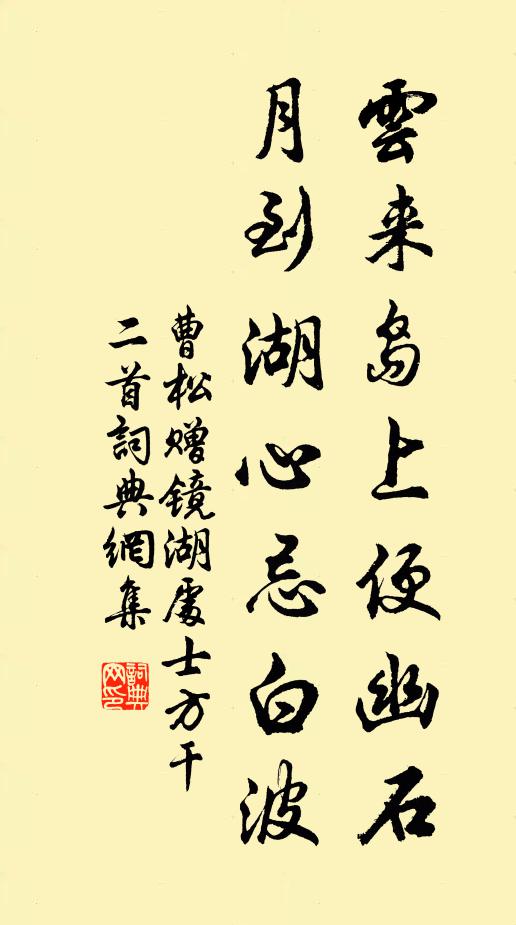 雲来島上便幽石
月到湖心忌白波
曹松赠镜湖處士方干
二首詞典網集
詞典
网印